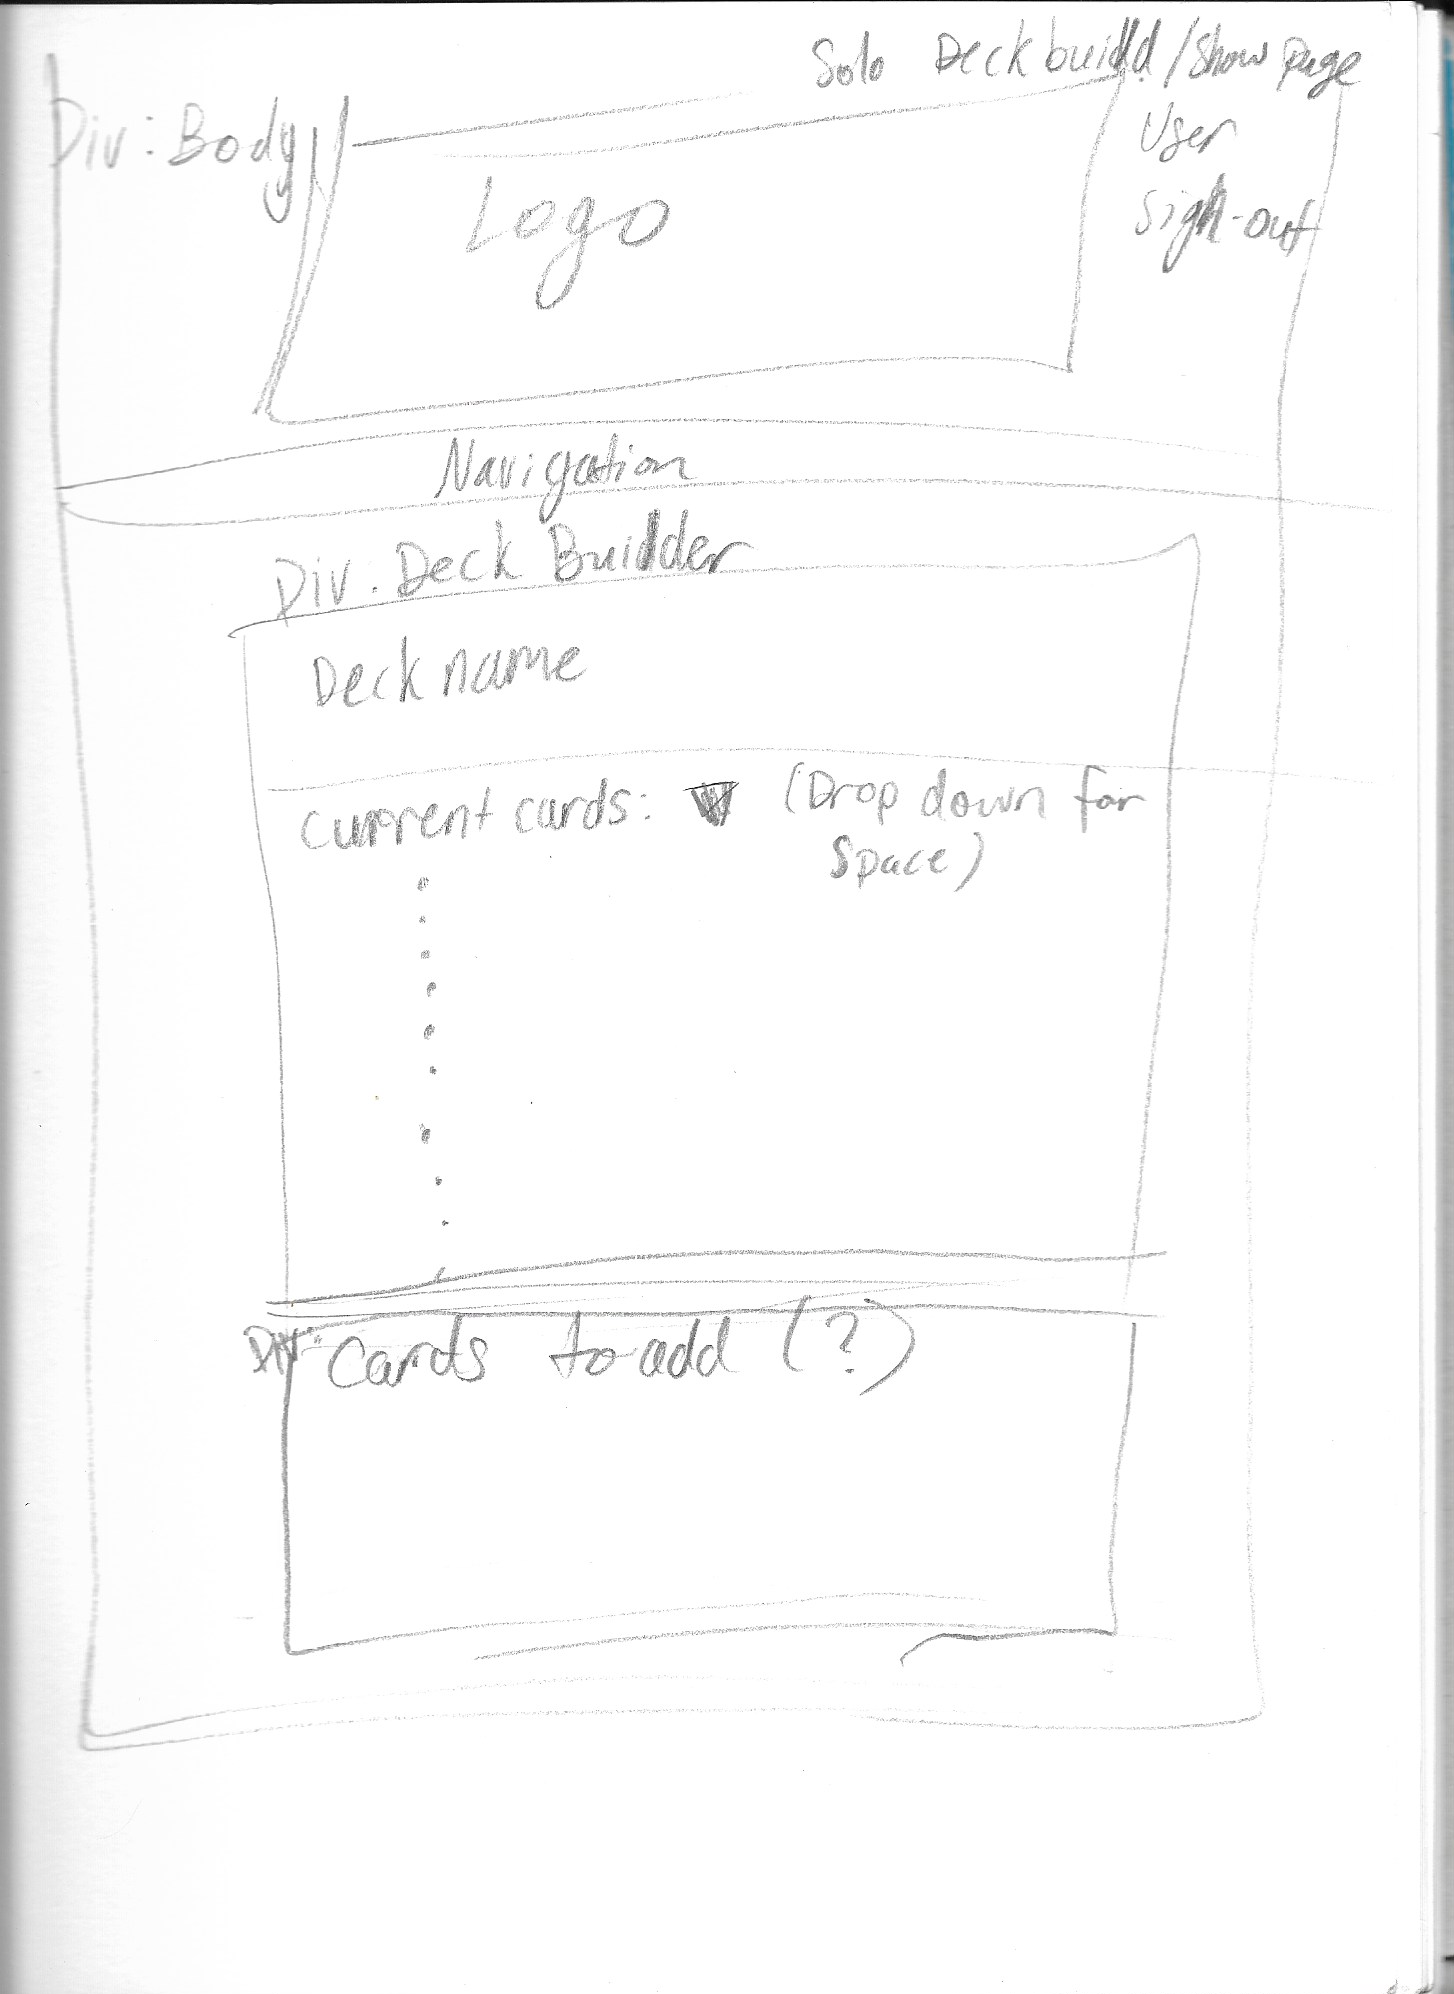 Solo Deck build / Show page
Div: Body
User
Logo
Sign-out
Navigation
Div: Deck Builder
Deck name
Current cards: (Drop down for
Space)
Div: Cards to add (?)